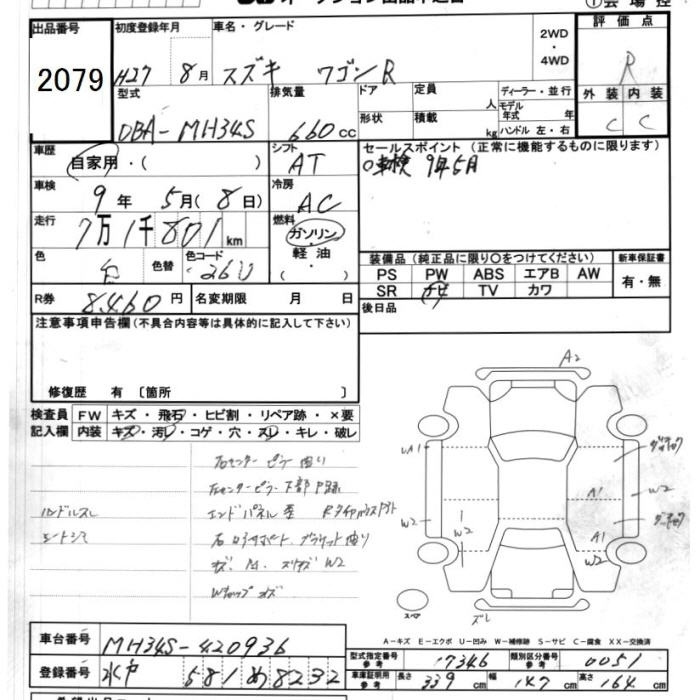 出品番号
2079
初度登録年月
H27 8月
車名・グレード
スズキ ワゴンR
2WD
・
4WD
評価点
R
外装 内装
C C
型式
DBA-MH34S
排気量
660cc
ドア
形状
定員 人
積載 kg
ディーラー・並行
モデル年式 年
ハンドル 左・右
車歴
自家用・( )
シフト
AT
セールスポイント (正常に機能するものに限ります)
○車検 9年5月
車検
9年 5月(8日)
冷房
AC
走行
7万1千801km
燃料
ガソリン
軽油
( )
色
白
色替
色コード
26U
装備品 (純正品に限り○をつけてください)
新車保証書
PS PW ABS エアB AW
有・無
SR ナビ TV カワ
R券 8,460円
名変期限 月 日
後日品
注意事項申告欄 (不具合内容等は具体的に記入して下さい)
修復歴 有 〔箇所 〕
検査員記入欄
FW キズ・飛石・ヒビ割・リペア跡・×要
内装 キズ・汚レ・コゲ・穴・スレ・キレ・破レ
右センターピラー曲り
右センターピラー下部P跡
ハンドルスレ
エンドパネル歪
シートシミ
W2
A2
UA1
W2
W2
A1
W2
A1
W2
スレ
スペア
A-キズ E-エクボ U-凹み W-補修跡 S-サビ C-腐食 XX-交換済
車台番号
MH34S-420936
登録番号
水戸 581 め 8232
型式指定番号 参考
17346
類別区分番号 参考
0051
車庫証明用 参考
長さ 339cm
幅 147cm
高さ 164cm